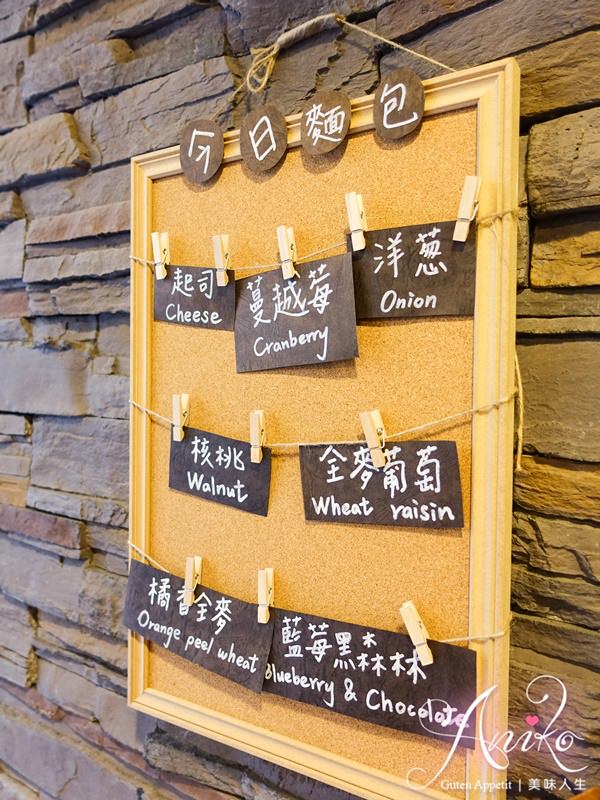 今日麵包
起司
Cheese
蔓越莓
Cranberry
洋葱
Onion
核桃
Walnut
全麥葡萄
Wheat raisin
橘香全麥
Orange peel wheat
藍莓黑森林
Blueberry & Chocolate
Aniko
Guten Appetit | 美味人生